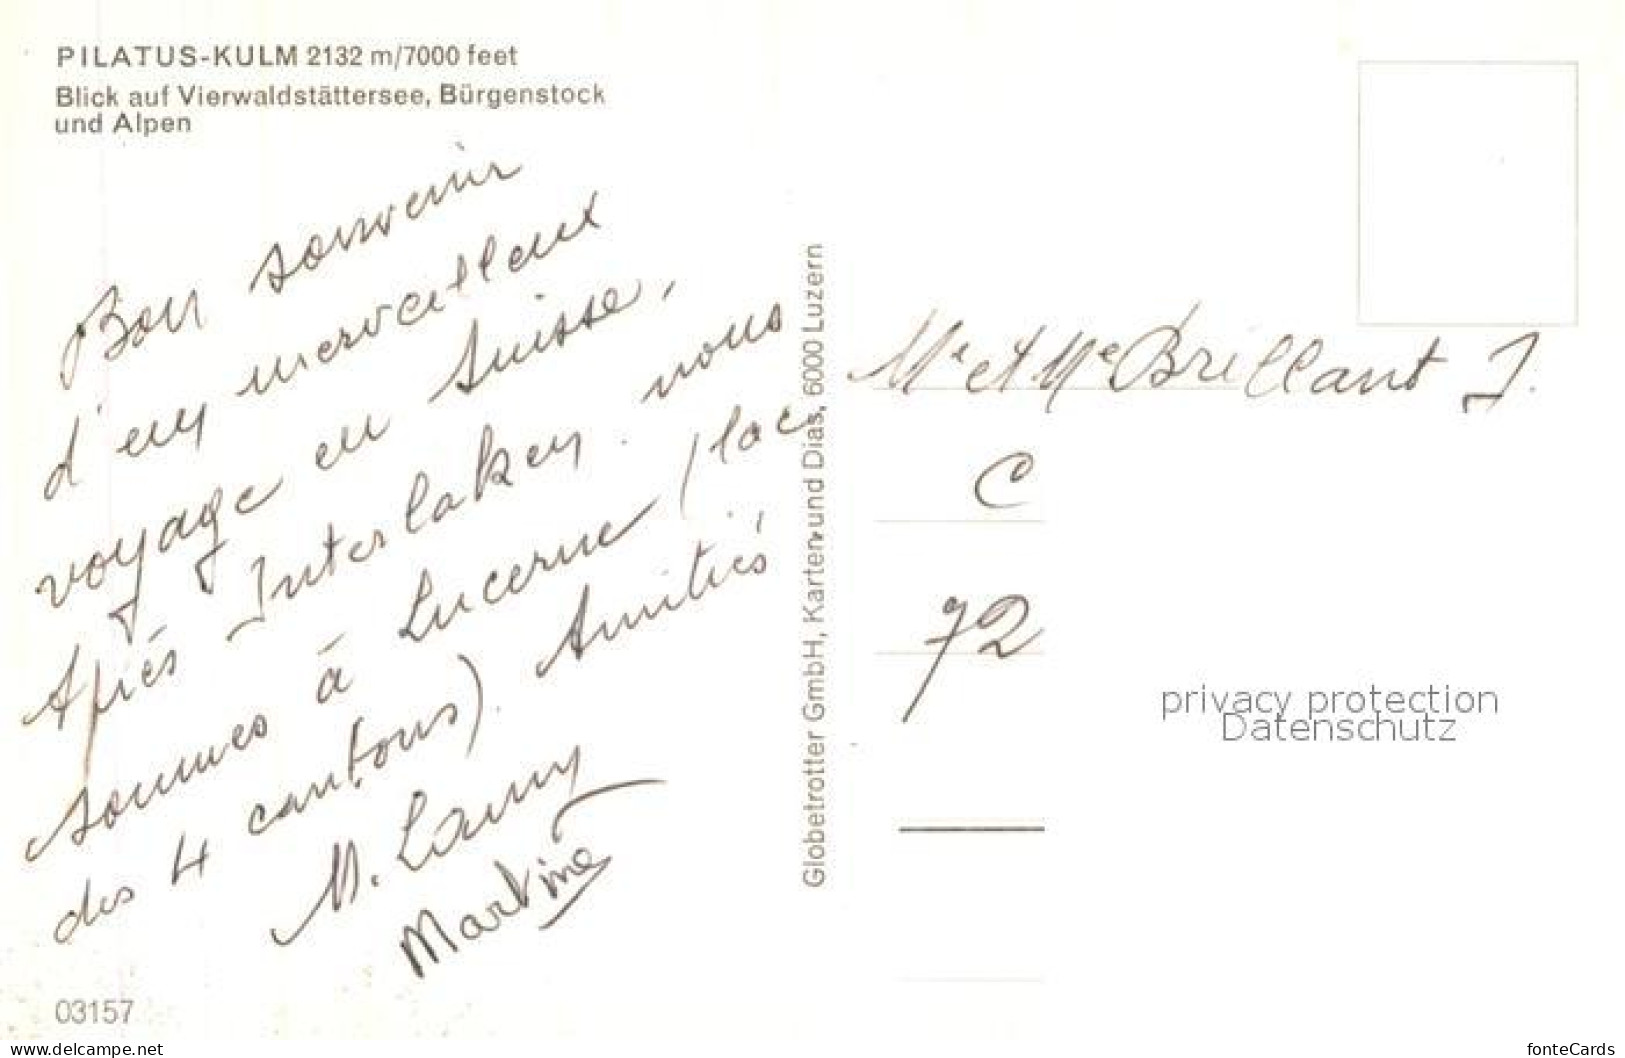 PILATUS-KULM 2132 m/7000 feet
Blick auf Vierwaldstättersee, Bürgenstock
und Alpen
Bon souvenir
d'un merveilleux
voyage en Suisse,
Après Interlaken. nous
sommes à Lucerne (lac
des 4 cantons). Amitiés
M. Lamy
Martine
03157
Globetrotter GmbH, Karten und Dias, 6000 Luzern
Mr et Me Brillant J.
C
72
privacy protection
Datenschutz
www.delcampe.net
fonteCards